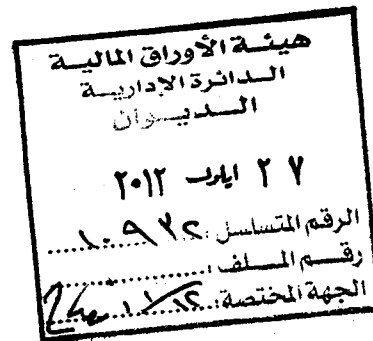 هيئة الأوراق المالية
الدائرة الإدارية
الديوان
٢٧ ايلول ٢٠١٢
الرقم المتسلسل : ١٠٩٣٢
رقم الملف :
الجهة المختصة :